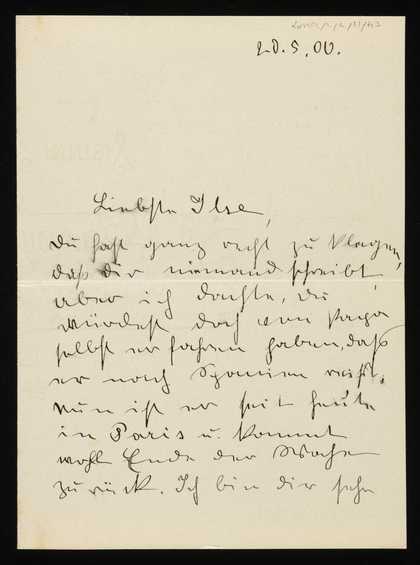 20.5.00.
Liebste Ilse,
Du hast ganz recht zu klagen,
daß dir niemand schreibt,
aber ich dachte, du
würdest doch von Papa
selbst erfahren haben, daß
er nach Spanien reist.
Nun ist er seit heute
in Paris u. kommt
wohl Ende der Woche
zurück. Ich bin dir sehr